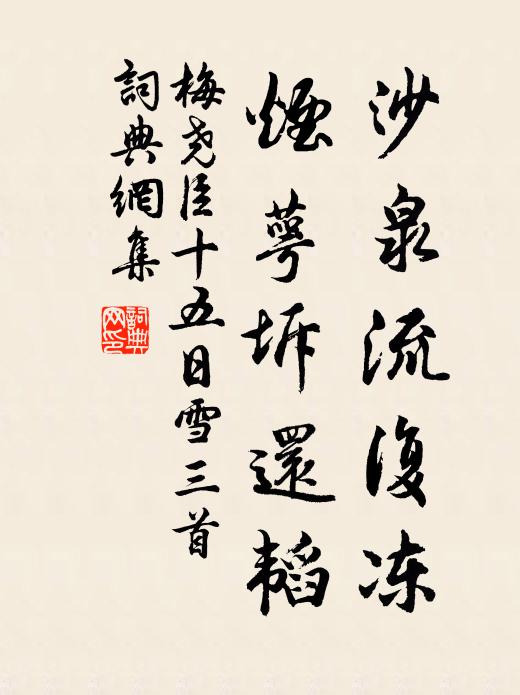 沙泉流復冻
煙萼坼還韬
梅尧臣十五日雪三首
詞典網集
詞典网印